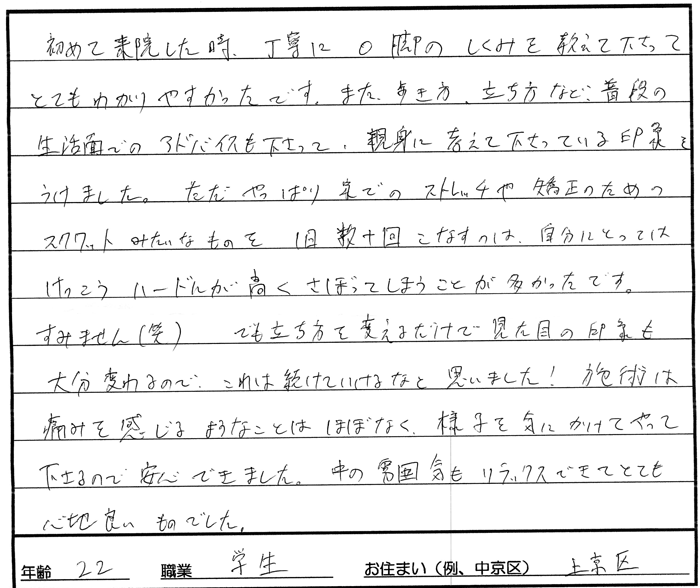 初めて来院した時、丁寧にO脚のしくみを教えて下さって
とてもわかりやすかったです。また、歩き方、立ち方など、普段の
生活面でのアドバイスも下さって、親身に考えて下さっている印象を
うけました。ただやっぱり家でのストレッチや矯正のための
スクワットみたいなものを1日数十回こなすのは、自分にとっては
けっこうハードルが高くさぼってしまうことが多かったです。
すみません(笑) でも立ち方を変えるだけで見た目の印象も
大分変わるので、これは続けていけるなと思いました！施術は
痛みを感じるようなことはほぼなく、様子を気にかけてやって
下さるので安心できました。中の雰囲気もリラックスできてとても
心地良いものでした。
年齢 22 職業 学生 お住まい（例、中京区） 上京区